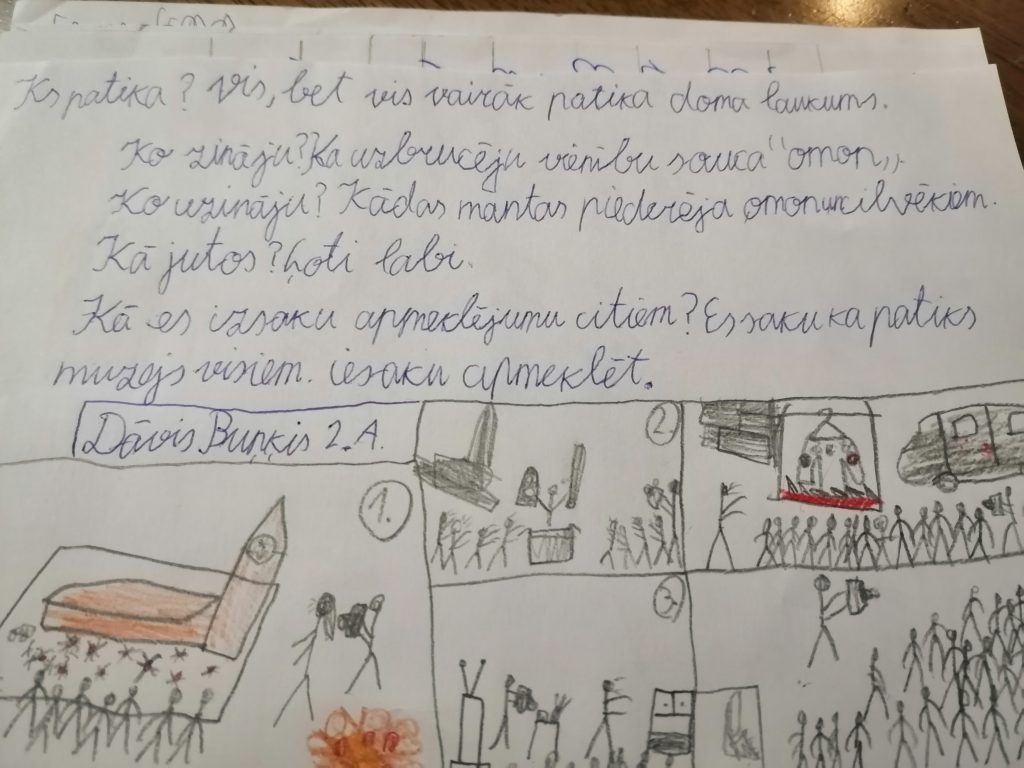 Ks patika? Vis, bet vis vairāk patika doma laukums.
Ko zināju? Ka uzbrucēju vienību sauca "omon„.
Ko uzināju? Kādas mantas piederēja omon cilvēkiem.
Kā jutos? Ļoti labi.
Kā es izsaku apmeklējumu citiem? Es saku ka patiks
muzejs visiem. iesaku apmeklēt.
Dāvis Buņķis 2.A.
1.
2.
3.